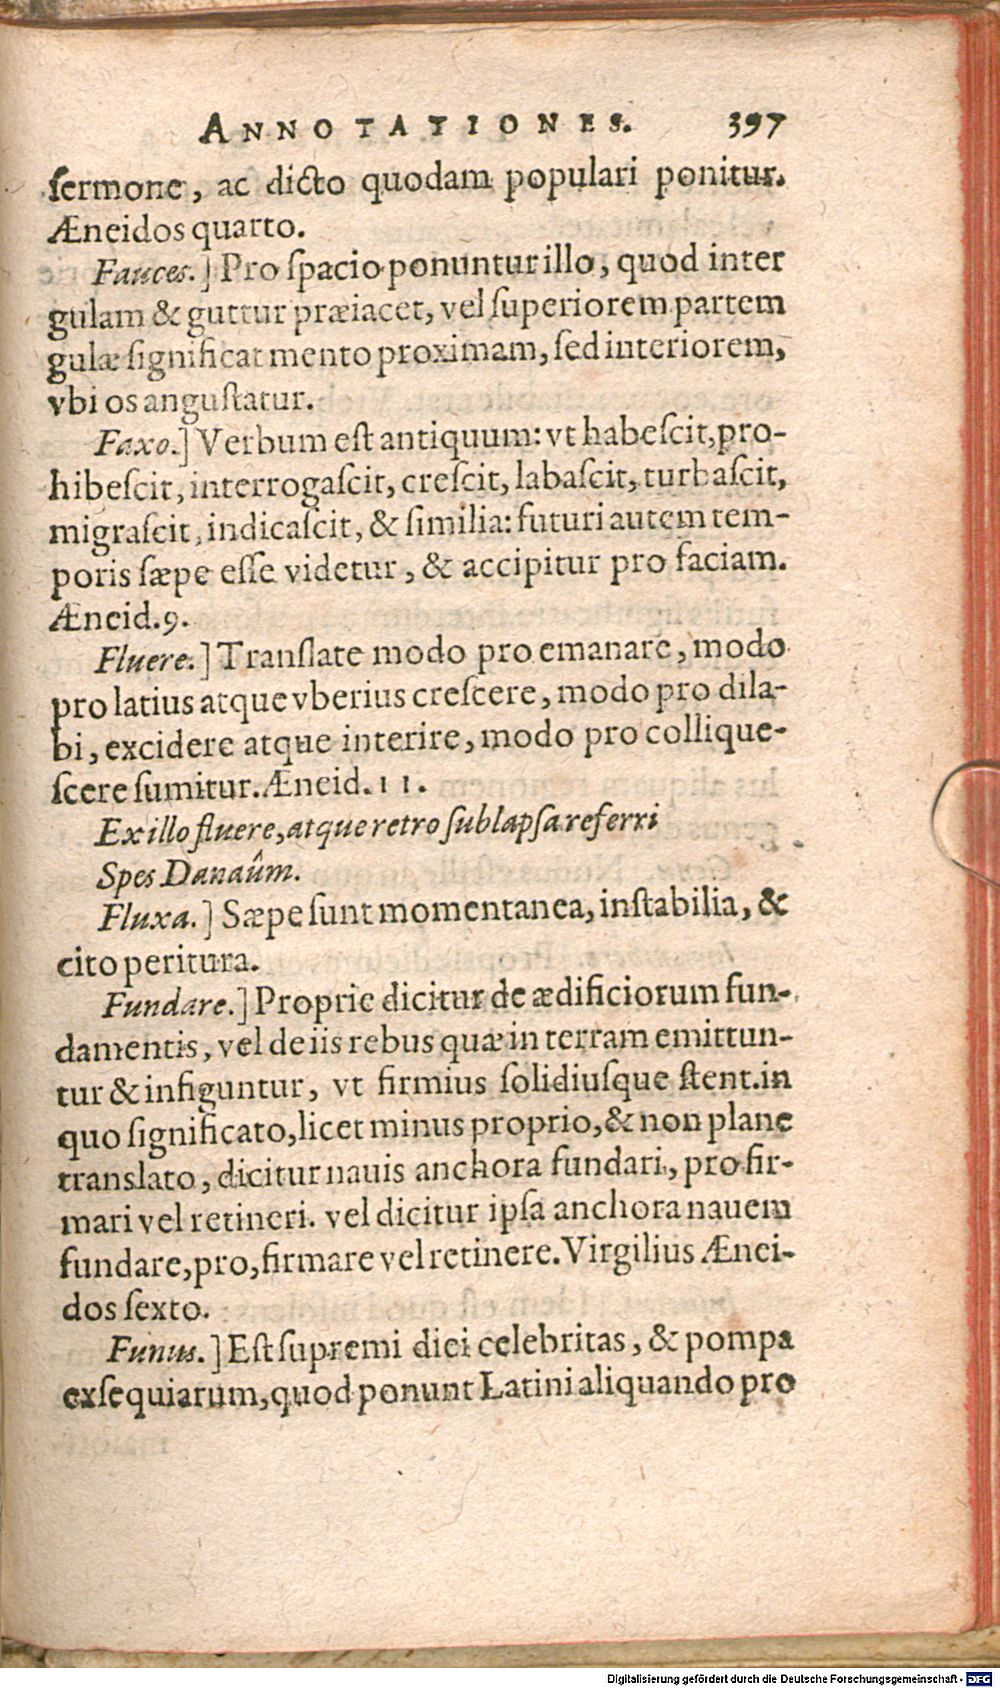 ANNOTATIONES. 397
ſermone, ac dicto quodam populari ponitur.
Æneidos quarto.
Fauces.] Pro ſpacio ponuntur illo, quod inter
gulam & guttur præiacet, vel ſuperiorem partem
gulæ ſignificat mento proximam, ſed interiorem,
vbi os anguſtatur.
Faxo.] Verbum eſt antiquum: vt habeſcit, pro-
hibeſcit, interrogaſcit, creſcit, labaſcit, turbaſcit,
migraſcit, indicaſcit, & ſimilia: futuri autem tem-
poris ſæpe eſſe videtur, & accipitur pro faciam.
Æneid.9.
Fluere.] Tranſlate modo pro emanare, modo
pro latius atque vberius creſcere, modo pro dila-
bi, excidere atque interire, modo pro collique-
ſcere ſumitur. Æneid. 11.
Ex illo fluere, atque retro ſublapſa referri
Spes Danaûm.
Fluxa.] Sæpe ſunt momentanea, inſtabilia, &
cito peritura.
Fundare.] Proprie dicitur de ædificiorum fun-
damentis, vel de iis rebus quæ in terram emittun-
tur & infiguntur, vt firmius ſolidiuſque ſtent. in
quo ſignificato, licet minus proprio, & non plane
translato, dicitur nauis anchora fundari, pro fir-
mari vel retineri. vel dicitur ipſa anchora nauem
fundare, pro, firmare vel retinere. Virgilius Ænei-
dos ſexto.
Funus.] Eſt ſupremi diei celebritas, & pompa
exſequiarum, quod ponunt Latini aliquando pro
Digitalisierung gefördert durch die Deutsche Forschungsgemeinschaft - DFG